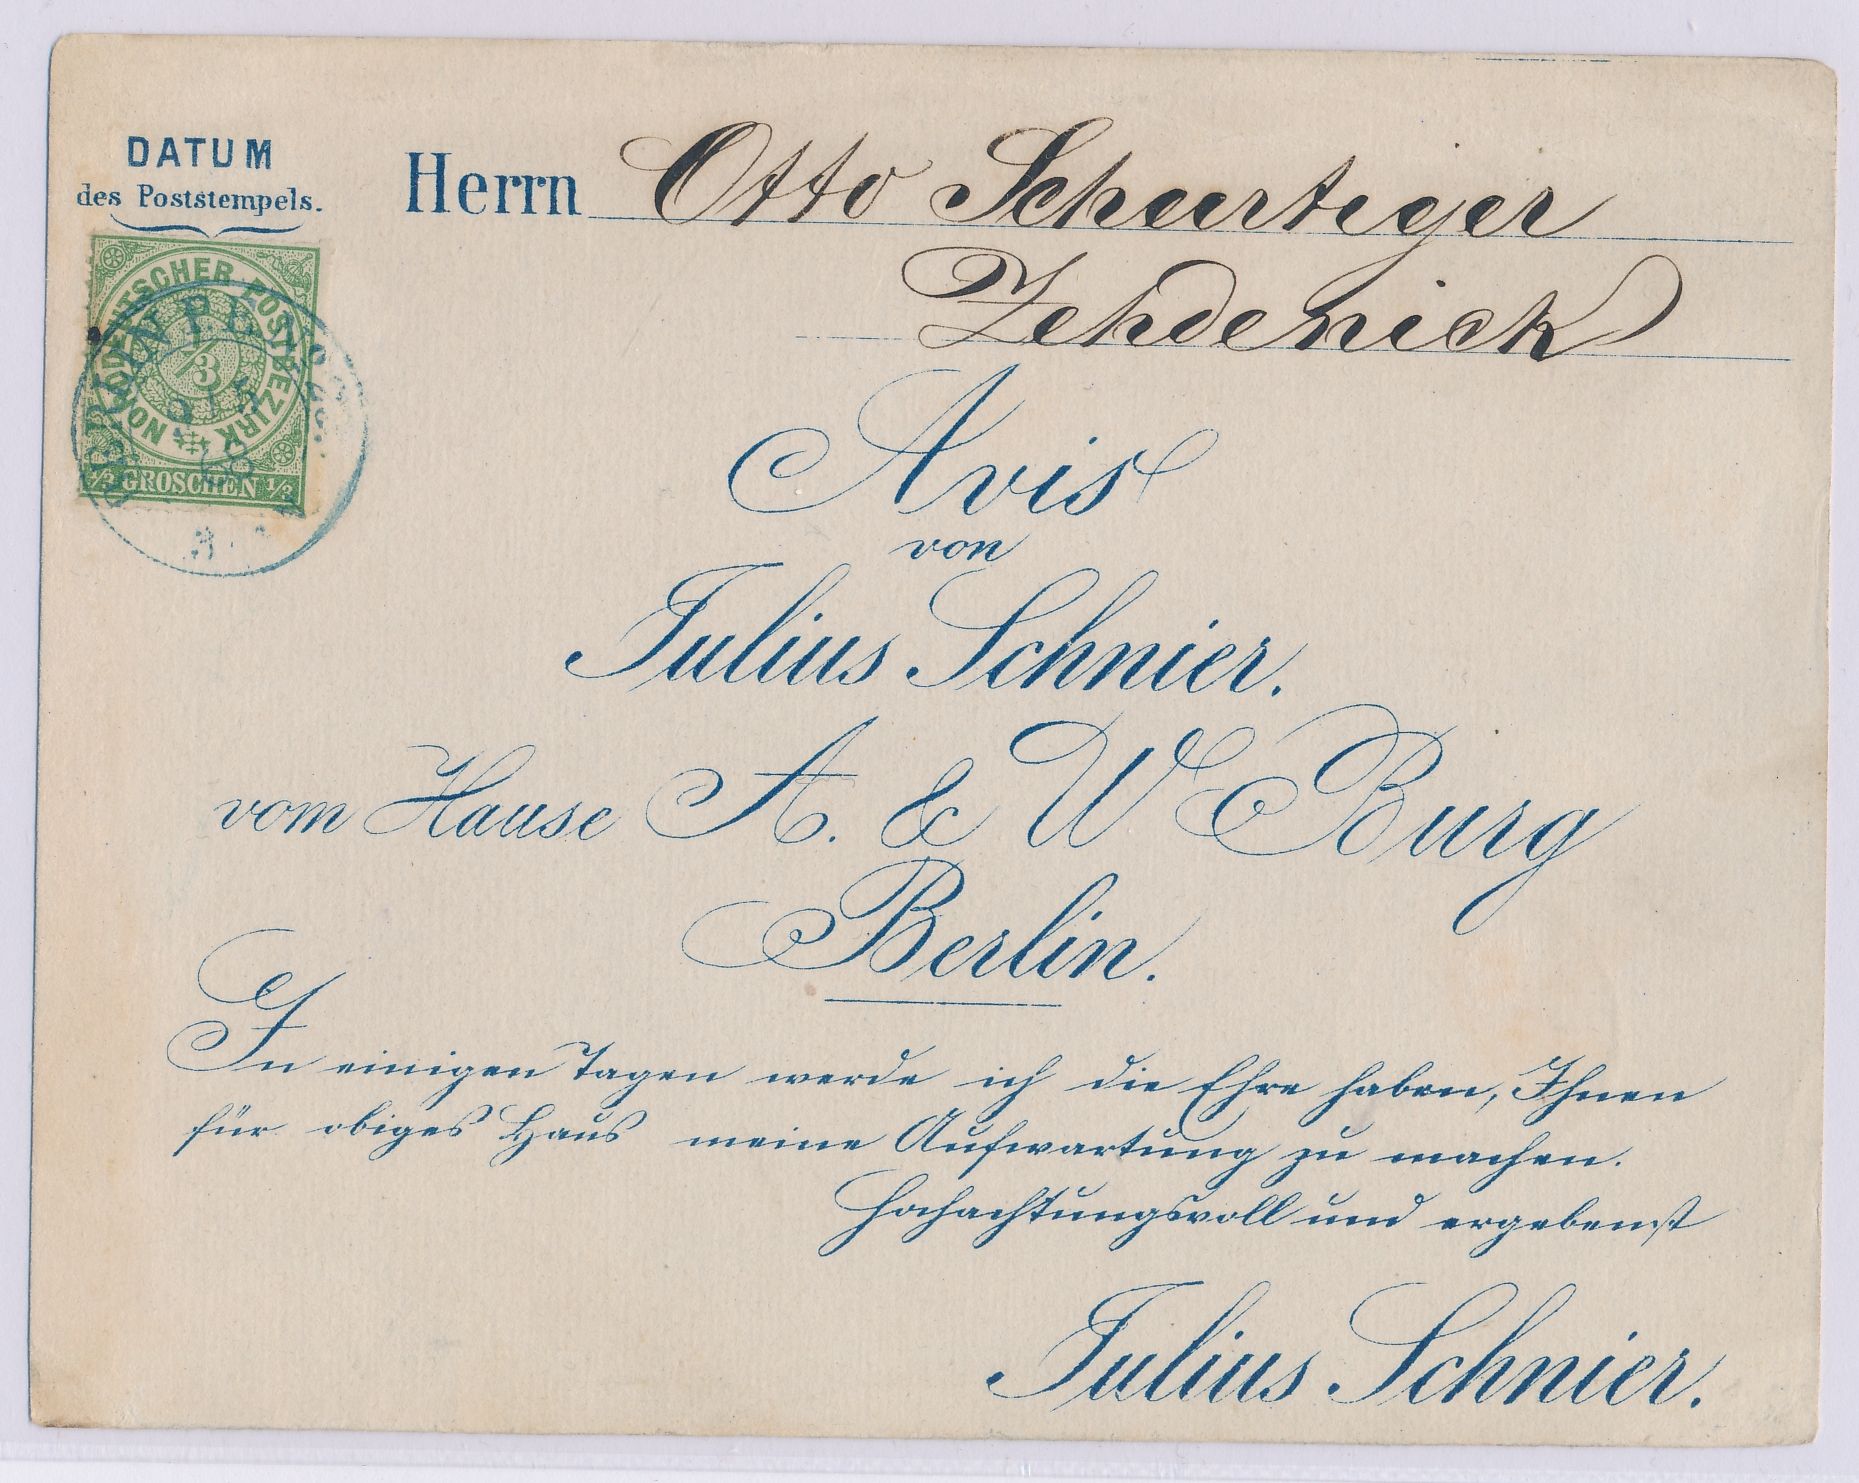 DATUM
des Poststempels.
Herrn Otto Schurtiger
Zehdenick
NORDDEUTSCHER POSTBEZIRK
1/3
1/3 GROSCHEN 1/3
BERLIN
68
Avis
von
Julius Schnier.
vom Hause A. & W Burg
Berlin.
In einigen Tagen werde ich die Ehre haben, Ihnen
für obiges Haus meine Aufwartung zu machen.
Hochachtungsvoll und ergebenst
Julius Schnier.